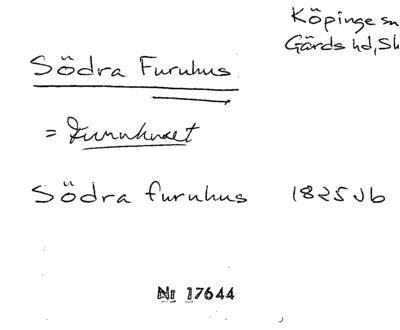 Köpinge sn
Gärds hd, Sk
Södra Furuhus
= Furuhuset
Södra furuhus 1825 Jb
Nr 17644